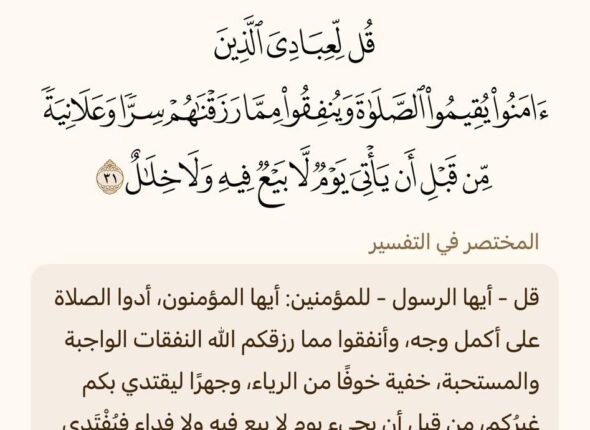 قُل لِّعِبَادِىَ ٱلَّذِينَ
ءَامَنُوا۟ يُقِيمُوا۟ ٱلصَّلَوٰةَ وَيُنفِقُوا۟ مِمَّا رَزَقْنَٰهُمْ سِرًّا وَعَلَانِيَةً
مِّن قَبْلِ أَن يَأْتِىَ يَوْمٌ لَّا بَيْعٌ فِيهِ وَلَا خِلَٰلٌ ٣١
المختصر في التفسير
قل - أيها الرسول - للمؤمنين: أيها المؤمنون، أدوا الصلاة
على أكمل وجه، وأنفقوا مما رزقكم الله النفقات الواجبة
والمستحبة، خفية خوفًا من الرياء، وجهرًا ليقتدي بكم
غيرُكم، من قبل أن يجيء يوم لا بيع فيه ولا فداء فيُفْتَدى